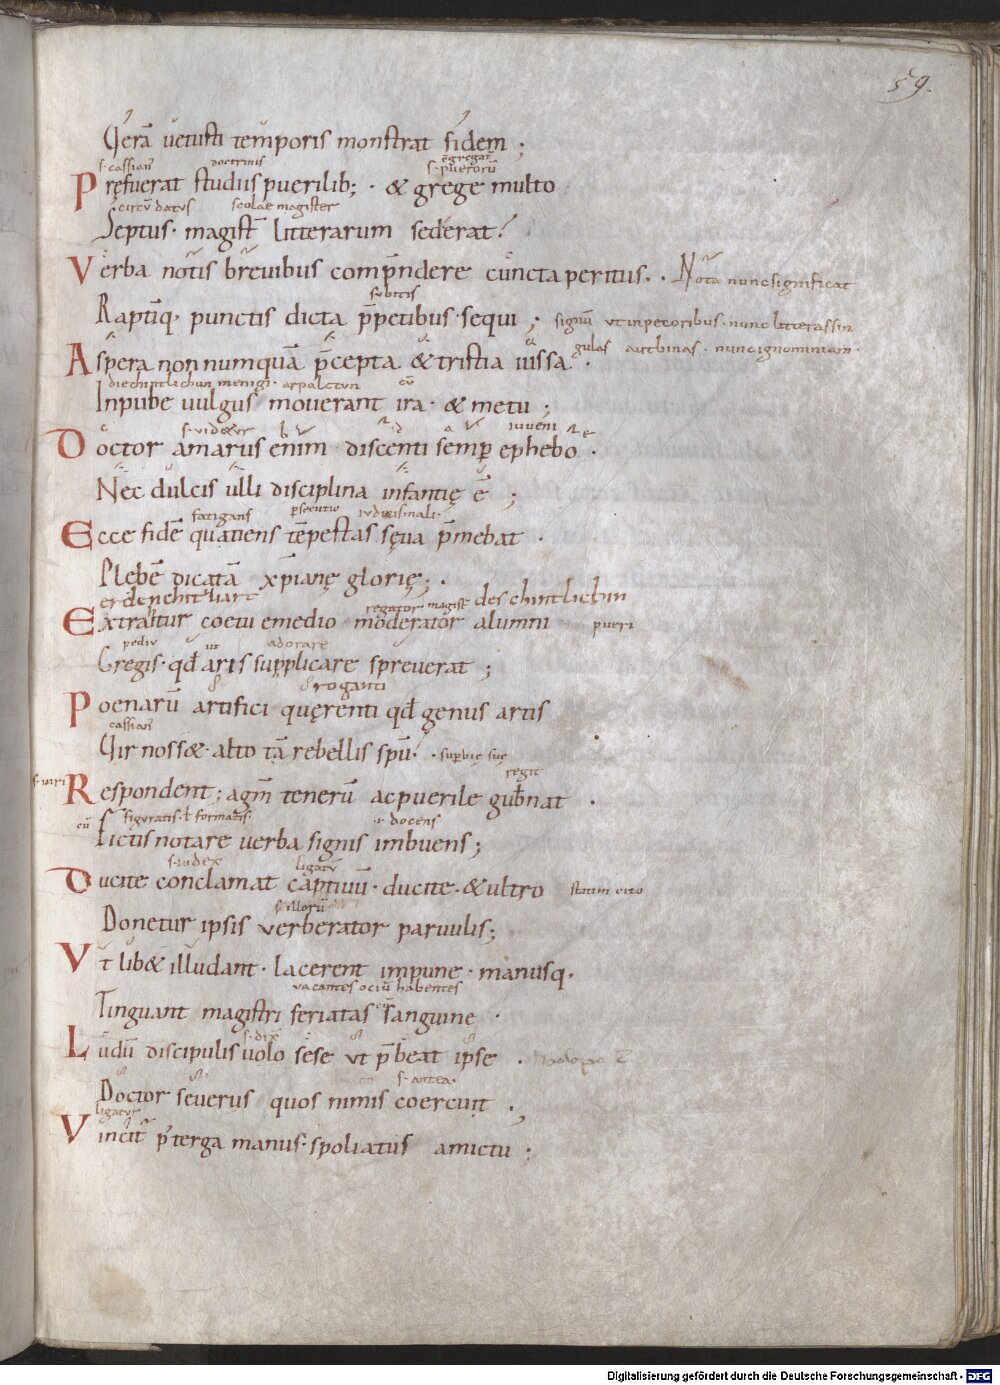 59.
Verā uetusti temporis monstrat fidem ;
s. cassian⁹ doctrinis egregat
s. puerorū
Pręfuerat studiis puerilib; · & grege multo
circū datus scolae magister
Septus · magistͬ litterarum sederat ·
Verba notis breuibus comp̄ndere cuncta peritus · · Nota nunc significat
subitis
Raptimq, punctis dicta p̄petibus · sequi ; signū ut in pecoribus · nunc litteras sin
gulas aut binas · nunc ignominiam ·
Aspera non numquā p̄cepta & tristia iussa ·
die chintlichun menigi · arpalctun cū
Inpube uulgus mouerant ira · & metu ;
s. uidetur iuueni
Doctor amarus enim discenti semp ephebo ·
Nec dulcis ulli disciplina infantię ē ;
fatigans psecutio iudicis mali ·
Ecce fidē quatiens tēpestas sęua p̄mebat ·
Plebē dicatā xp̄ianę glorię ; ·
regator magistͬ des chintlichin
Extrahitur coetu emedio moderator alumni pueri
adorare
Gregis · qđ aris supplicare spreuerat ;
roganti
Poenarū artifici quęrenti qđ genus artis
cassian⁹
Vir noss& · alto tā rebellis spū · · supbię suę
s. uiri regit
Respondent ; agm̄ tenerū ac puerile gub̄nat ·
cū figuratis · ł formatis · docens
Fictis notare uerba signis imbuens ;
s. iudex ligatū
Ducite conclamat captiuū · ducite · & ultro statim cito
s. illorū
Donetur ipsis uerberator paruulis ;
Vt lib& illudant · lacerent impune · manusq,
vacantes ociū habentes
Tinguant magistri feriatas sanguine ·
s. dix
Ludū discipulis uolo sese ut p̄beat ipse ·
s. antea ·
Doctor seuerus quos nimis coercuit ·
ligatur
Vincitͬ p̄ terga manus · spoliatus amictu ;
Digitalisierung gefördert durch die Deutsche Forschungsgemeinschaft - DFG